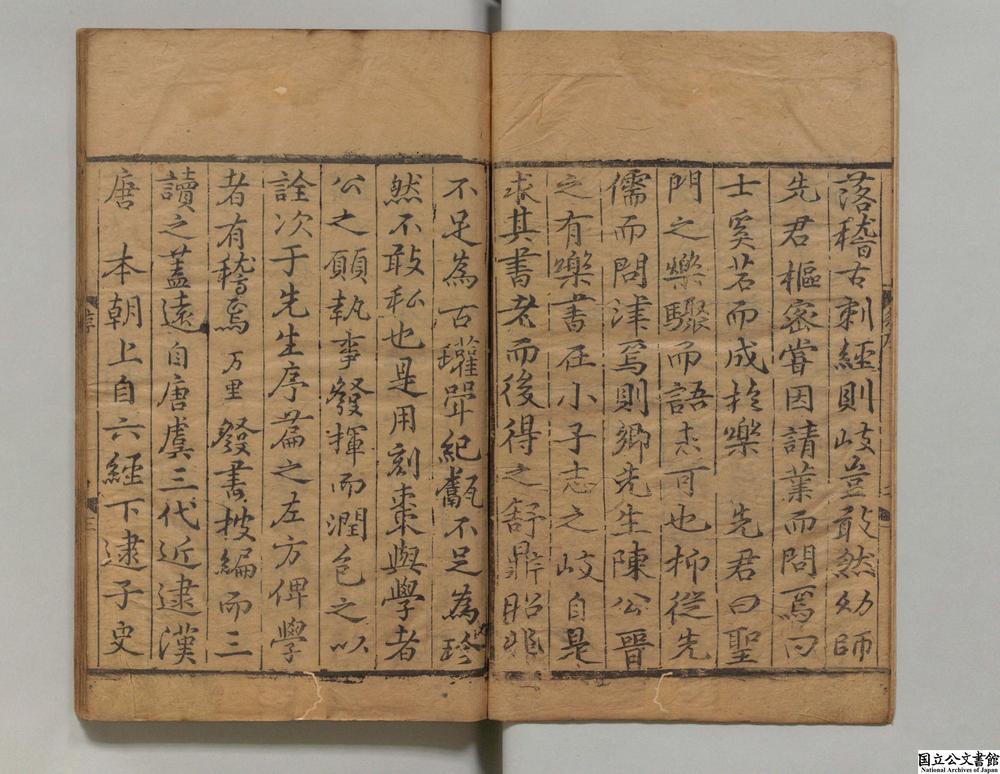 落稽古刺經則岐豈敢然幼師
先君樞密嘗因請業而問焉曰
士奚若而成於樂　先君曰聖
門之樂驟而語未可也抑從先
儒而問津焉則鄉先生陳公晉
之有樂書在小子志之岐自是
求其書老而後得之舒鼎昭兆
不足為古瓘斝紀甗不足為珍
然不敢私也是用刻棗與學者
公之願執事發揮而潤色之以
詮次于先生序篇之左方俾學
者有稽焉万里發書披編而三
讀之蓋遠自唐虞三代近逮漢
唐　本朝上自六經下逮子史
序
国立公文書館
National Archives of Japan